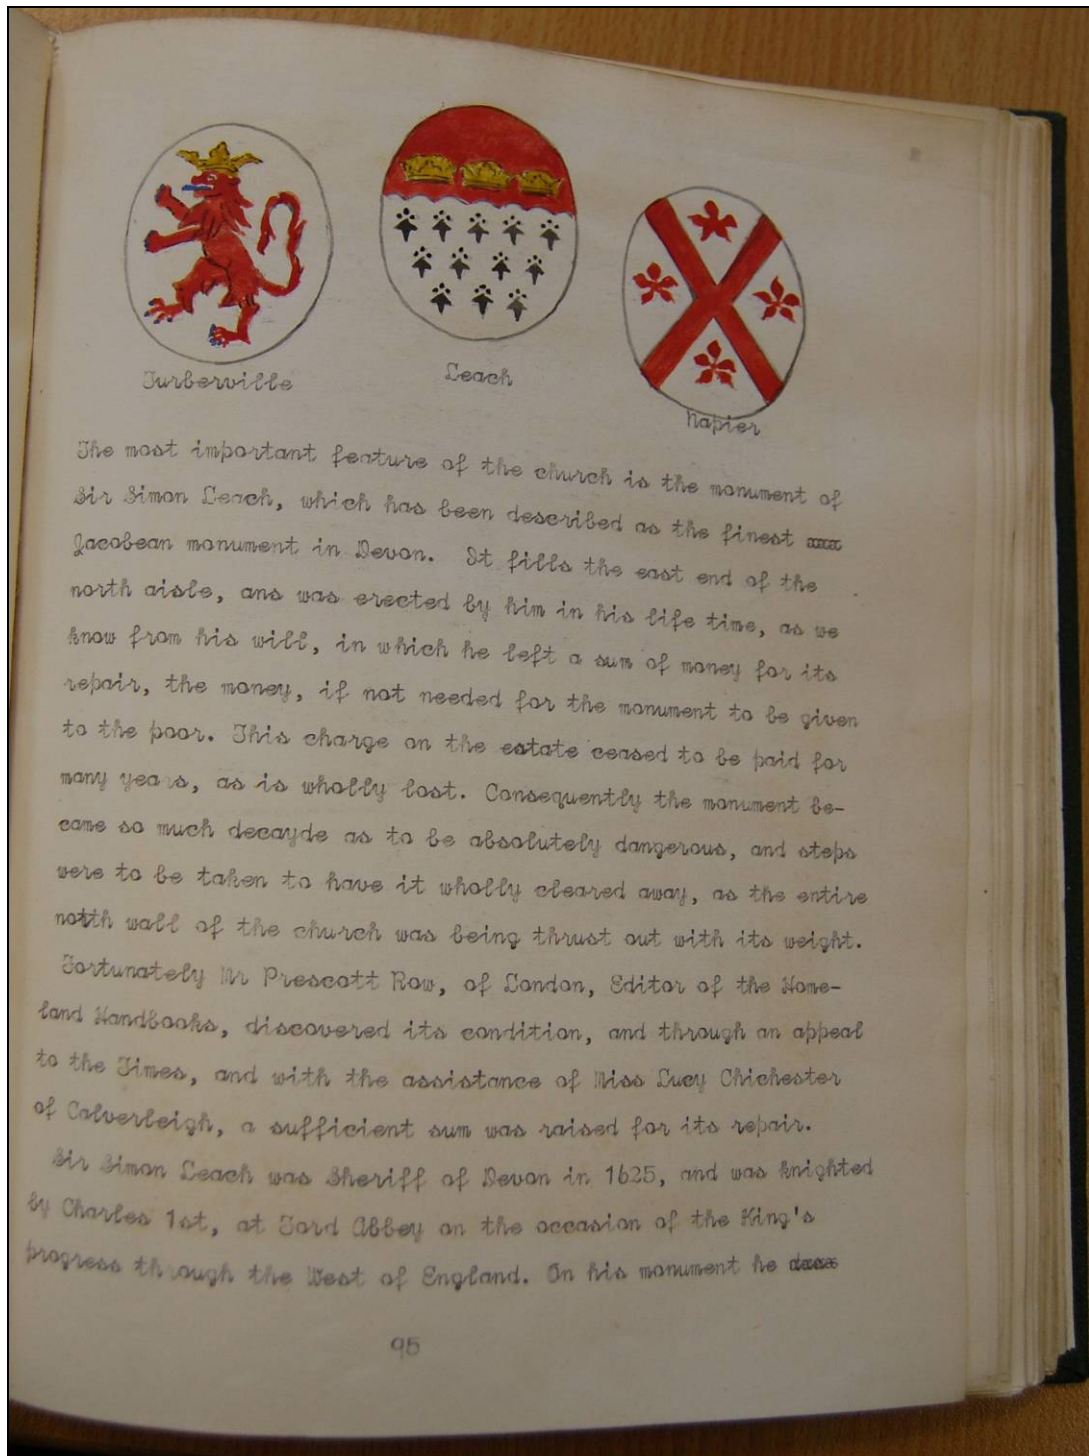 Turberville
Leach
Napier
The most important feature of the church is the monument of
Sir Simon Leach, which has been described as the finest
Jacobean monument in Devon. It fills the east end of the
north aisle, ans was erected by him in his life time, as we
know from his will, in which he left a sum of money for its
repair, the money, if not needed for the monument to be given
to the poor. This charge on the estate ceased to be paid for
many years, as is wholly lost. Consequently the monument be-
came so much decayde as to be absolutely dangerous, and steps
were to be taken to have it wholly cleared away, as the entire
notth wall of the church was being thrust out with its weight.
Fortunately Mr Prescott Row, of London, Editor of the Home-
land Handbooks, discovered its condition, and through an appeal
to the Times, and with the assistance of Miss Lucy Chichester
of Calverleigh, a sufficient sum was raised for its repair.
Sir Simon Leach was Sheriff of Devon in 1625, and was knighted
by Charles 1st, at Ford Abbey on the occasion of the King's
progress through the West of England. On his monument he
95